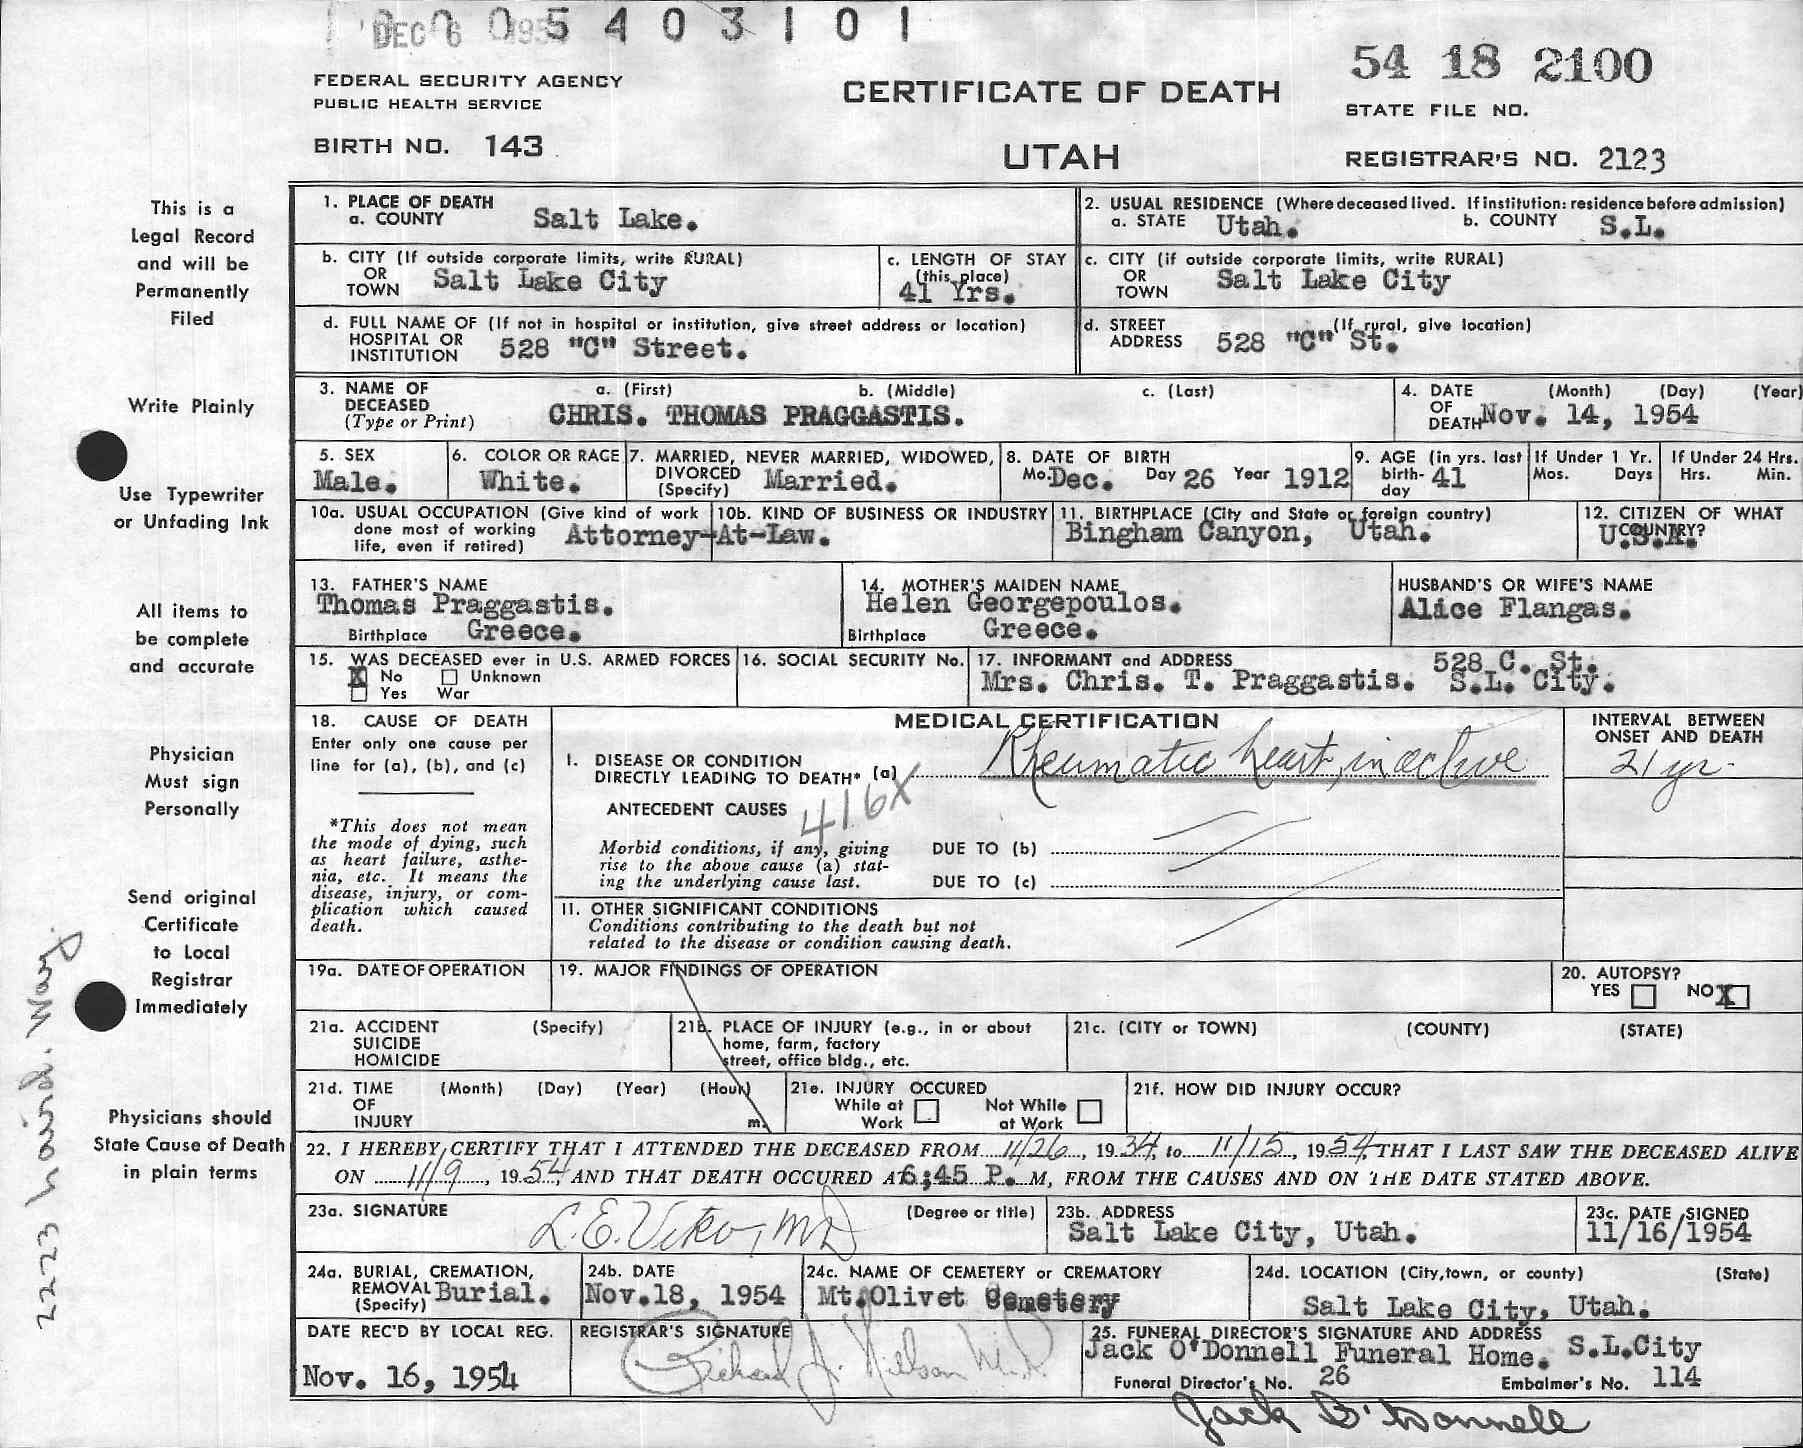 DEC 6 195
0 0 5 4 0 3 1 0 1
54 18 2100
FEDERAL SECURITY AGENCY
PUBLIC HEALTH SERVICE
CERTIFICATE OF DEATH
STATE FILE NO.
BIRTH NO. 143
UTAH
REGISTRAR'S NO. 2123
This is a
Legal Record
and will be
Permanently
Filed
Write Plainly
Use Typewriter
or Unfading Ink
All items to
be complete
and accurate
Physician
Must sign
Personally
Send original
Certificate
to Local
Registrar
Immediately
Physicians should
State Cause of Death
in plain terms
2223
1. PLACE OF DEATH
a. COUNTY Salt Lake.
2. USUAL RESIDENCE (Where deceased lived. If institution: residence before admission)
a. STATE Utah. b. COUNTY S.L.
b. CITY (If outside corporate limits, write RURAL)
OR
TOWN Salt Lake City
c. LENGTH OF STAY
(this place)
41 Yrs.
c. CITY (if outside corporate limits, write RURAL)
OR
TOWN Salt Lake City
d. FULL NAME OF (If not in hospital or institution, give street address or location)
HOSPITAL OR
INSTITUTION 528 "C" Street.
d. STREET (If rural, give location)
ADDRESS 528 "C" St.
3. NAME OF a. (First) b. (Middle) c. (Last)
DECEASED
(Type or Print) CHRIS. THOMAS PRAGGASTIS.
4. DATE (Month) (Day) (Year)
OF
DEATH Nov. 14, 1954
5. SEX
Male.
6. COLOR OR RACE
White.
7. MARRIED, NEVER MARRIED, WIDOWED,
DIVORCED
(Specify) Married.
8. DATE OF BIRTH
Mo. Dec. Day 26 Year 1912
9. AGE (in yrs. last
birth-
day 41
If Under 1 Yr.
Mos. Days
If Under 24 Hrs.
Hrs. Min.
10a. USUAL OCCUPATION (Give kind of work
done most of working
life, even if retired)
10b. KIND OF BUSINESS OR INDUSTRY
Attorney-At-Law.
11. BIRTHPLACE (City and State or foreign country)
Bingham Canyon, Utah.
12. CITIZEN OF WHAT
COUNTRY?
U.S.A.
13. FATHER'S NAME
Thomas Praggastis.
Birthplace Greece.
14. MOTHER'S MAIDEN NAME
Helen Georgepoulos.
Birthplace Greece.
HUSBAND'S OR WIFE'S NAME
Alice Flangas.
15. WAS DECEASED ever in U.S. ARMED FORCES
X No Unknown
Yes War
16. SOCIAL SECURITY No.
17. INFORMANT and ADDRESS 528 C. St.
Mrs. Chris. T. Praggastis. S.L. City.
18. CAUSE OF DEATH
Enter only one cause per
line for (a), (b), and (c)
*This does not mean
the mode of dying, such
as heart failure, asthe-
nia, etc. It means the
disease, injury, or com-
plication which caused
death.
MEDICAL CERTIFICATION
I. DISEASE OR CONDITION
DIRECTLY LEADING TO DEATH* (a) Rheumatic heart, inactive
416X
ANTECEDENT CAUSES
Morbid conditions, if any, giving
rise to the above cause (a) stat-
ing the underlying cause last.
DUE TO (b)
DUE TO (c)
II. OTHER SIGNIFICANT CONDITIONS
Conditions contributing to the death but not
related to the disease or condition causing death.
INTERVAL BETWEEN
ONSET AND DEATH
21 yr.
19a. DATE OF OPERATION
19. MAJOR FINDINGS OF OPERATION
20. AUTOPSY?
YES NO X
21a. ACCIDENT (Specify)
SUICIDE
HOMICIDE
21b. PLACE OF INJURY (e.g., in or about
home, farm, factory
street, office bldg., etc.
21c. (CITY or TOWN) (COUNTY) (STATE)
21d. TIME (Month) (Day) (Year) (Hour)
OF
INJURY m.
21e. INJURY OCCURED
While at Work Not While at Work
21f. HOW DID INJURY OCCUR?
22. I HEREBY CERTIFY THAT I ATTENDED THE DECEASED FROM 11/26, 1934, to 11/15, 1954, THAT I LAST SAW THE DECEASED ALIVE
ON 11/9, 1954, AND THAT DEATH OCCURED AT 6:45 P. M, FROM THE CAUSES AND ON THE DATE STATED ABOVE.
23a. SIGNATURE (Degree or title)
L.E. Viko, MD
23b. ADDRESS
Salt Lake City, Utah.
23c. DATE SIGNED
11/16/1954
24a. BURIAL, CREMATION,
REMOVAL
(Specify) Burial.
24b. DATE
Nov.18, 1954
24c. NAME OF CEMETERY or CREMATORY
Mt.Olivet Cemetery
24d. LOCATION (City, town, or county) (State)
Salt Lake City, Utah.
DATE REC'D BY LOCAL REG.
Nov. 16, 1954
REGISTRAR'S SIGNATURE
Richard J. Nielson M.D
25. FUNERAL DIRECTOR'S SIGNATURE AND ADDRESS
Jack O'Donnell Funeral Home. S.L.City
Funeral Director's No. 26 Embalmer's No. 114
Jack O'Donnell